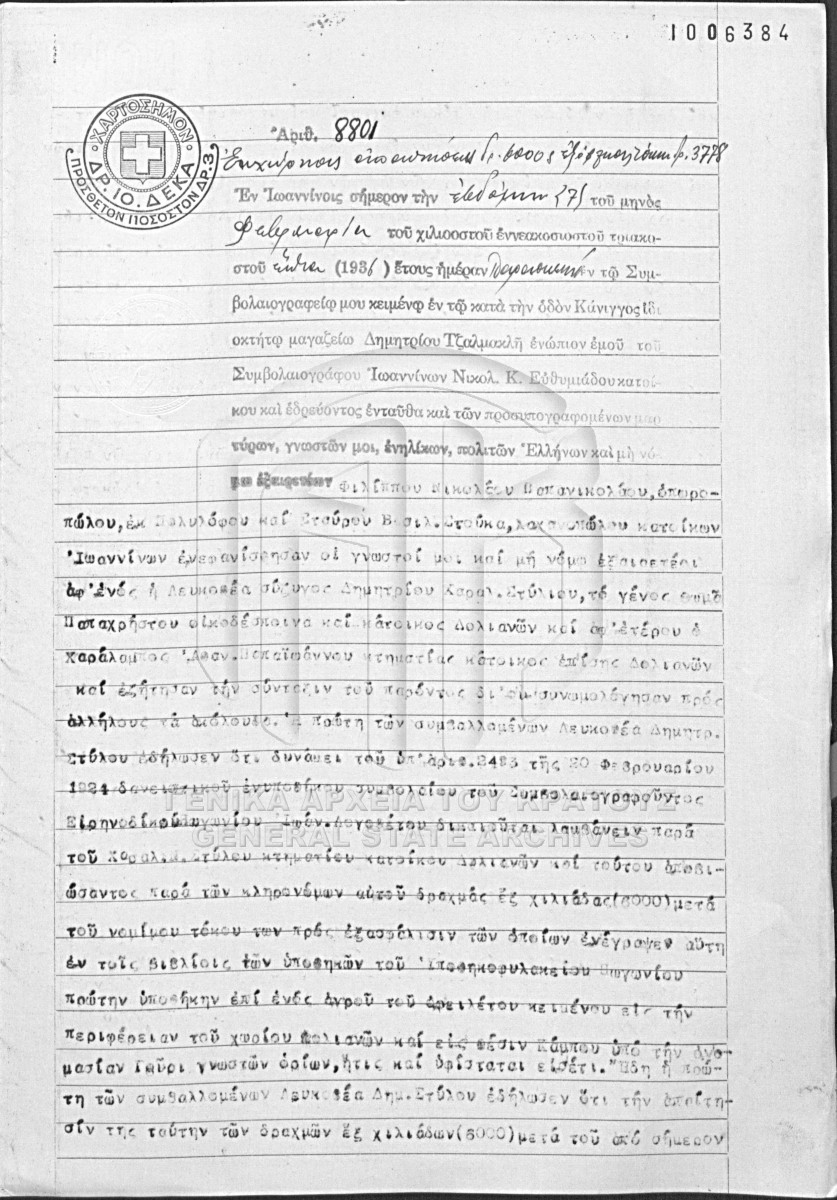 1006384
ΧΑΡΤΟΣΗΜΟΝ
ΔΡ. 10. ΔΕΚΑ
ΠΡΟΣΘΕΤΟΝ ΠΟΣΟΣΤΟΝ ΔΡ. 3
Ἀριθ. 8801
Ἐν Ἰωαννίνοις σήμερον τὴν ἑβδόμην (7) τοῦ μηνὸς
Φεβρουαρίου τοῦ χιλιοοστοῦ ἐννεακοσιοστοῦ τριακο-
στοῦ ἕκτου (1936) ἔτους ἡμέραν Παρασκευὴν ἐν τῷ Συμ-
βολαιογραφείῳ μου κειμένῳ ἐν τῷ κατὰ τὴν ὁδὸν Κάνιγγος ἰδι
οκτήτῳ μαγαζείῳ Δημητρίου Τζαλμακλῆ ἐνώπιον ἐμοῦ τοῦ
Συμβολαιογράφου Ἰωαννίνων Νικολ. Κ. Εὐθυμιάδου κατοί-
κου καὶ ἑδρεύοντος ἐνταῦθα καὶ τῶν προσυπογραφομένων μαρ
τύρων, γνωστῶν μοι, ἐνηλίκων, πολιτῶν Ἑλλήνων καὶ μὴ νό-
μῳ ἐξαιρετέων Φιλίππου Νικολάου Παπανικολάου, ὀπωρο-
πώλου, ἐκ Πολυλόφου καὶ Σταύρου Βασιλ. Στούκα, λαχανοπώλου κατοίκων
Ἰωαννίνων ἐνεφανίσθησαν οἱ γνωστοί μοι καὶ μὴ νόμῳ ἐξαιρετέοι
ἀφ' ἑνὸς ἡ Λευκοθέα σύζυγος Δημητρίου Χαραλ. Στύλου, τὸ γένος Θωμᾶ
Παπαχρήστου οἰκοδέσποινα καὶ κάτοικος Δολιανῶν καὶ ἀφ' ἑτέρου ὁ
Χαράλαμπος Ἀθαν. Παπαϊωάννου κτηματίας κάτοικος ἐπίσης Δολιανῶν
καὶ ἐζήτησαν τὴν σύνταξιν τοῦ παρόντος δι' οὗ συνωμολόγησαν πρὸς
ἀλλήλους τὰ ἀκόλουθα. Ἡ πρώτη τῶν συμβαλλομένων Λευκοθέα Δημητρ.
Στύλου ἐδήλωσεν ὅτι δυνάμει τοῦ ὑπ' ἀριθ. 2483 τῆς 20 Φεβρουαρίου
1924 δανειστικοῦ ἐνυποθήκου συμβολαίου τοῦ Συμβολαιογραφοῦντος
Εἰρηνοδίκου Πωγωνίου Λογοθέτου δικαιοῦται λαμβάνειν παρὰ
τοῦ Χαραλ. Στύλου κτηματίου κατοίκου Δολιανῶν καὶ τούτου ἀποβι-
ώσαντος παρὰ τῶν κληρονόμων αὐτοῦ δραχμὰς ἓξ χιλιάδας (6000) μετὰ
τοῦ νομίμου τόκου των πρὸς ἐξασφάλισιν τῶν ὁποίων ἐνέγραψεν αὕτη
ἐν τοῖς βιβλίοις τῶν ὑποθηκῶν τοῦ Ὑποθηκοφυλακείου Πωγωνίου
πρώτην ὑποθήκην ἐπὶ ἑνὸς ἀγροῦ τοῦ ὀφειλέτου κειμένου εἰς τὴν
περιφέρειαν τοῦ χωρίου Δολιανῶν καὶ εἰς θέσιν Κάμπου ὑπὸ τὴν ὀνο-
μασίαν γνωστῶν ὁρίων, ἥτις καὶ ὑφίσταται εἰσέτι. Ἤδη ἡ πρώ-
τη τῶν συμβαλλομένων Λευκοθέα Δημ. Στύλου ἐδήλωσεν ὅτι τὴν ἀπαίτη-
σίν της ταύτην τῶν δραχμῶν ἓξ χιλιάδων (6000) μετὰ τοῦ ἀπὸ σήμερον
ΓΕΝΙΚΑ ΑΡΧΕΙΑ ΤΟΥ ΚΡΑΤΟΥΣ
GENERAL STATE ARCHIVES